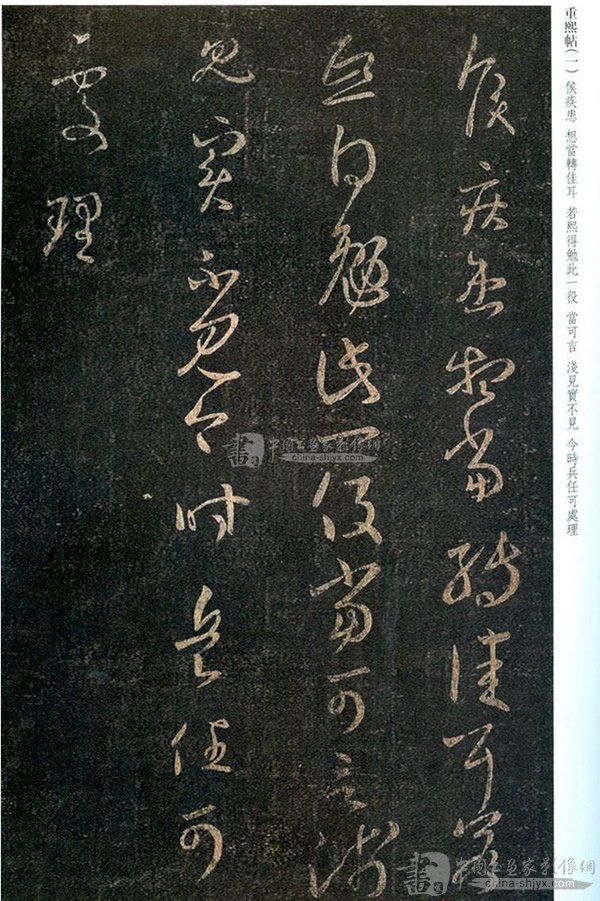 重熙帖(一) 侯疾患 想當轉佳耳 若熙得勉此一役 當可言 淺見實不見 今時兵任可處理
侯疾患想當轉佳耳若
熙得勉此一役當可言淺
見實不見今時兵任可
處理
書 中國書畫家影像網
china-shjyx.com
書 中國書畫家影像網
www.china-shjyx.com